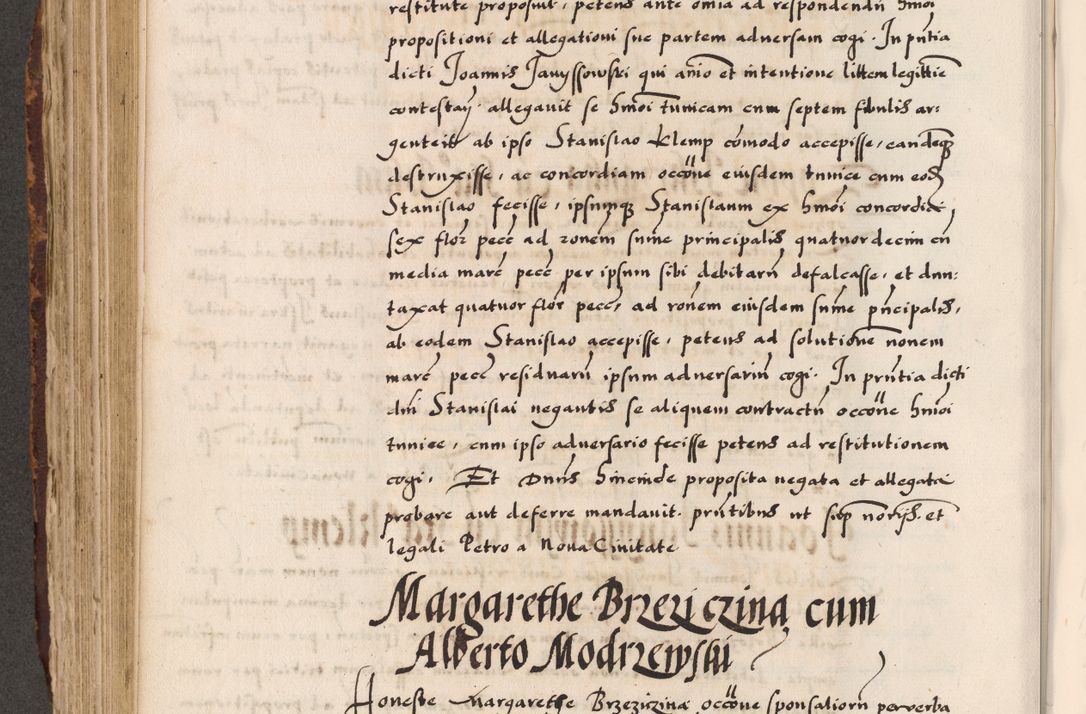 restitute proposuit, petens ante omia ad respondendũ hmõi
propositioni et allegationi sue partem adversam cogi. In pñtia
dicti Joannis Janyssowski qui añio et intentione littem legittĩe
contestãĩ allegavit se hmõi tunicam cum septem fibulis ar:
genteis ab ipso Stanislao Klemp cõmodo accepisse, eandẽq̃
destruxisse, ac concordiam occõne eiusdem tunice cum eod̃
Stanislao fecisse, ipsumq̃ Stanislaum ex hmõi concordia
sex flõr pecc̃ ad rõnem sum̃e principalis quatuordecim cũ
media marc̃ pecc̃ per ipsum sibi debitarũ defalcasse, et dun:
taxat quatuor flõr pecc̃, ad rõnem eiusdem sum̃e pñcipalis,
ab eodem Stanislao accepisse, petens ad solutionẽ nonem
marc̃ pecc̃ residuarũ ipsum adversariũ cogi. In pñtia dicti
dñi Stanislai negantis se aliquem contractũ occõne hmõi
tunice, cum ipso adversario fecisse petens ad restitutionem
cogi. Et Dnñs hincinde proposita negata et allegata
probare aut deferre mandavit. pñtibus ut sup̃ norijs. et
legali Petro a Nova Civitate
Margarethe Brzeziczina cum
Alberto Modrzewski
Honeste Margarethe Brzezizina occõne sponsaliorũ per verba